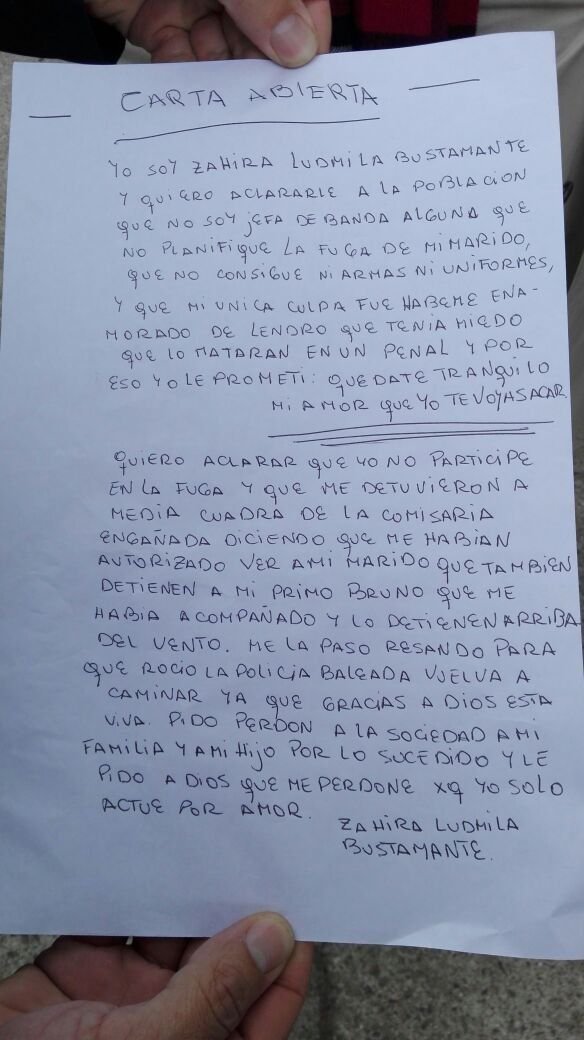 — CARTA ABIERTA —
YO SOY ZAHIRA LUDMILA BUSTAMANTE
Y QUIERO ACLARARLE A LA POBLACION
QUE NO SOY JEFA DE BANDA ALGUNA QUE
NO PLANIFIQUE LA FUGA DE MI MARIDO,
QUE NO CONSIGUE NI ARMAS NI UNIFORMES,
Y QUE MI UNICA CULPA FUE HABEME ENA-
MORADO DE LENDRO QUE TENIA MIEDO
QUE LO MATARAN EN UN PENAL Y POR
ESO YO LE PROMETI: QUEDATE TRANQUILO
MI AMOR QUE YO TE VOY A SACAR.
QUIERO ACLARAR QUE YO NO PARTICIPE
EN LA FUGA Y QUE ME DETUVIERON A
MEDIA CUADRA DE LA COMISARIA
ENGAÑADA DICIENDO QUE ME HABIAN
AUTORIZADO VER A MI MARIDO QUE TAMBIEN
DETIENEN A MI PRIMO BRUNO QUE ME
HABIA ACOMPAÑADO Y LO DETIENEN ARRIBA
DEL VENTO. ME LA PASO RESANDO PARA
QUE ROCIO LA POLICIA BALEADA VUELVA A
CAMINAR YA QUE GRACIAS A DIOS ESTA
VIVA. PIDO PERDON A LA SOCIEDAD A MI
FAMILIA Y A MI HIJO POR LO SUCEDIDO Y LE
PIDO A DIOS QUE ME PERDONE XQ YO SOLO
ACTUE POR AMOR.
ZAHIRA LUDMILA
BUSTAMANTE.